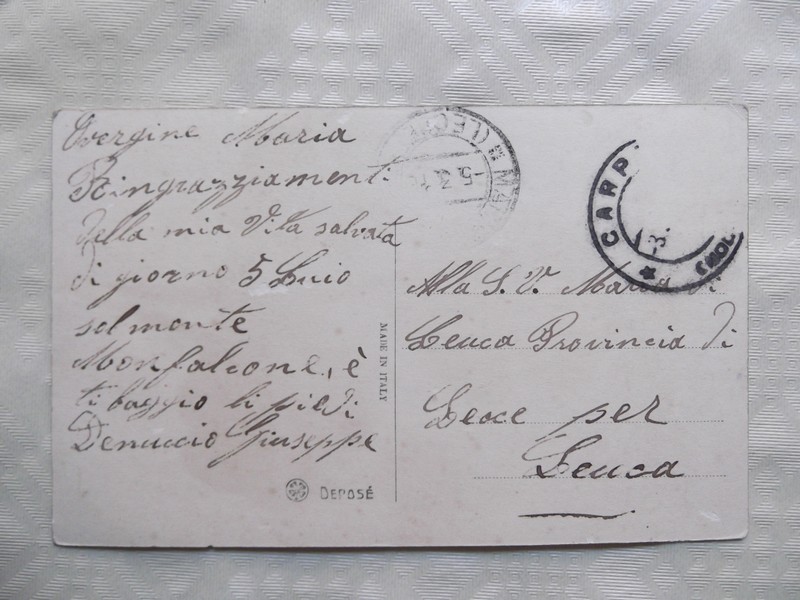 Vergine Maria
Ringrazziamenti
della mia Vita salvata
di giorno 5 Luio
sol monte
Monfalcone, è
ti baggio li piedi
Denuccio Giuseppe
MADE IN ITALY
DEPOSÉ
(LECCE)
5.3.
CARP
3.
Alla S. V. Maria di
Leuca Provincia di
Lecce per
Leuca